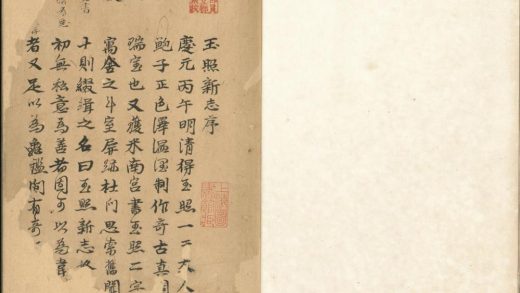 玉照新志序
慶元丙午明清得玉照一於友人
鮑子正色澤溫潤制作奇古真
瑞寶也又獲米南宮書玉照二字
寓舍之斗室屏跡杜门思索舊聞
十則綴緝之名曰玉照新志
初無私意為善者固可以為韋
者又足以為龜鑑間有奇